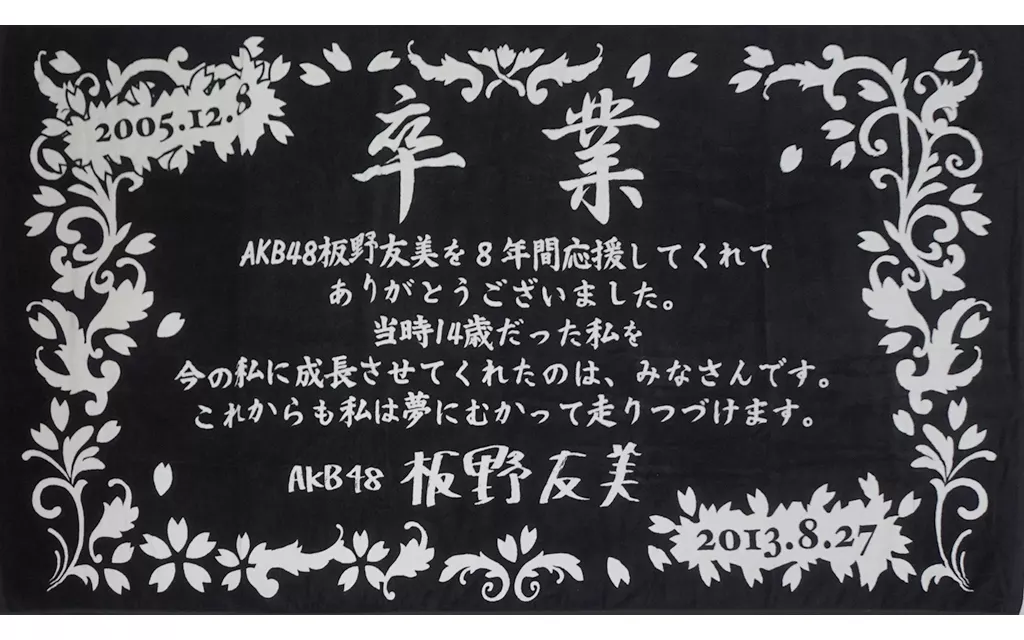 2005.12.8
卒業
AKB48板野友美を8年間応援してくれて
ありがとうございました。
当時14歳だった私を
今の私に成長させてくれたのは、みなさんです。
これからも私は夢にむかって走りつづけます。
AKB48 板野友美
2013.8.27